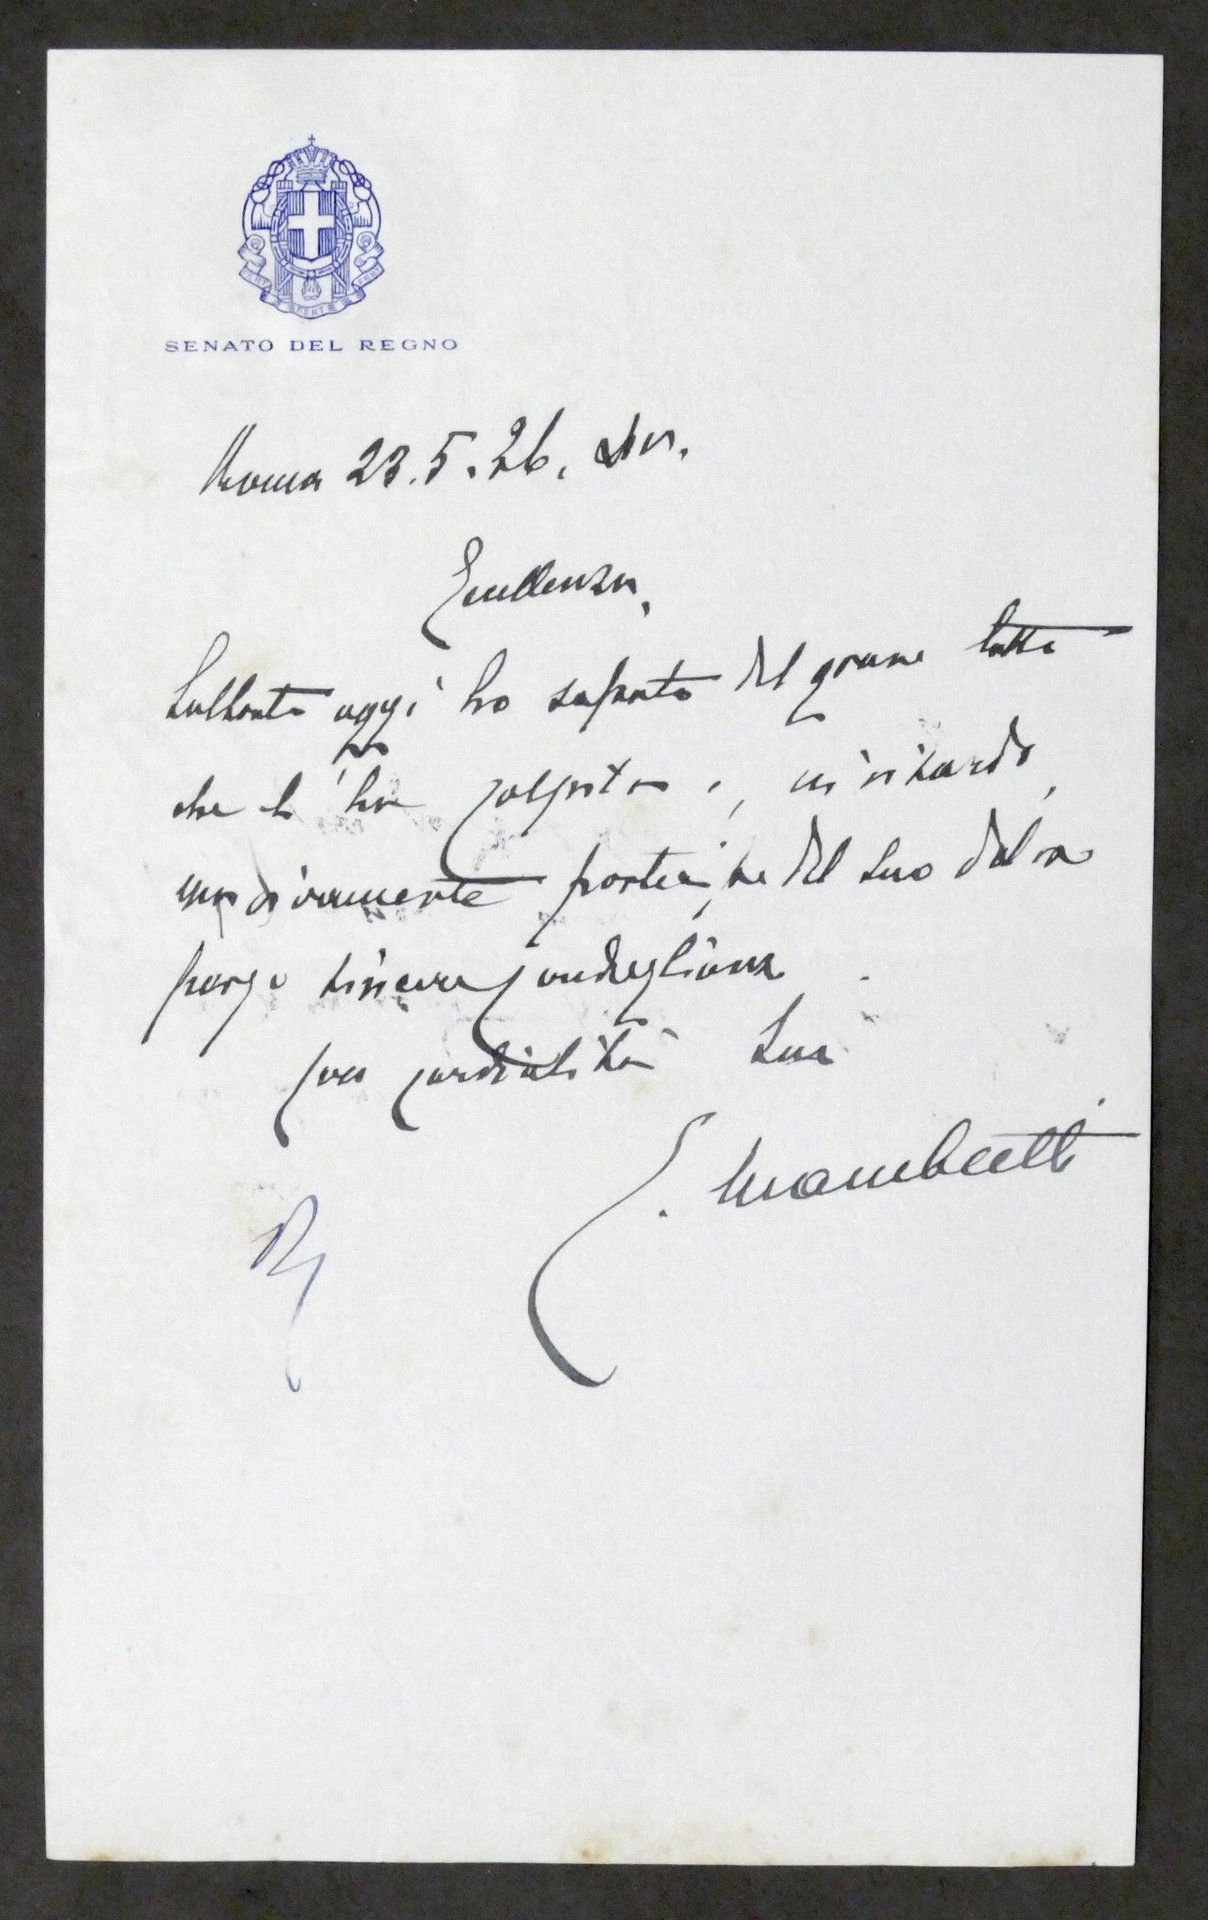 FERT
SENATO DEL REGNO
Roma 23.5.26.
Eccellenza,
Soltanto oggi ho saputo del grave lutto
che l'ha colpita e, in ritardo,
ma vivamente partecipe del Suo dolore
porgo sincere condoglianze
con cordialità Suo